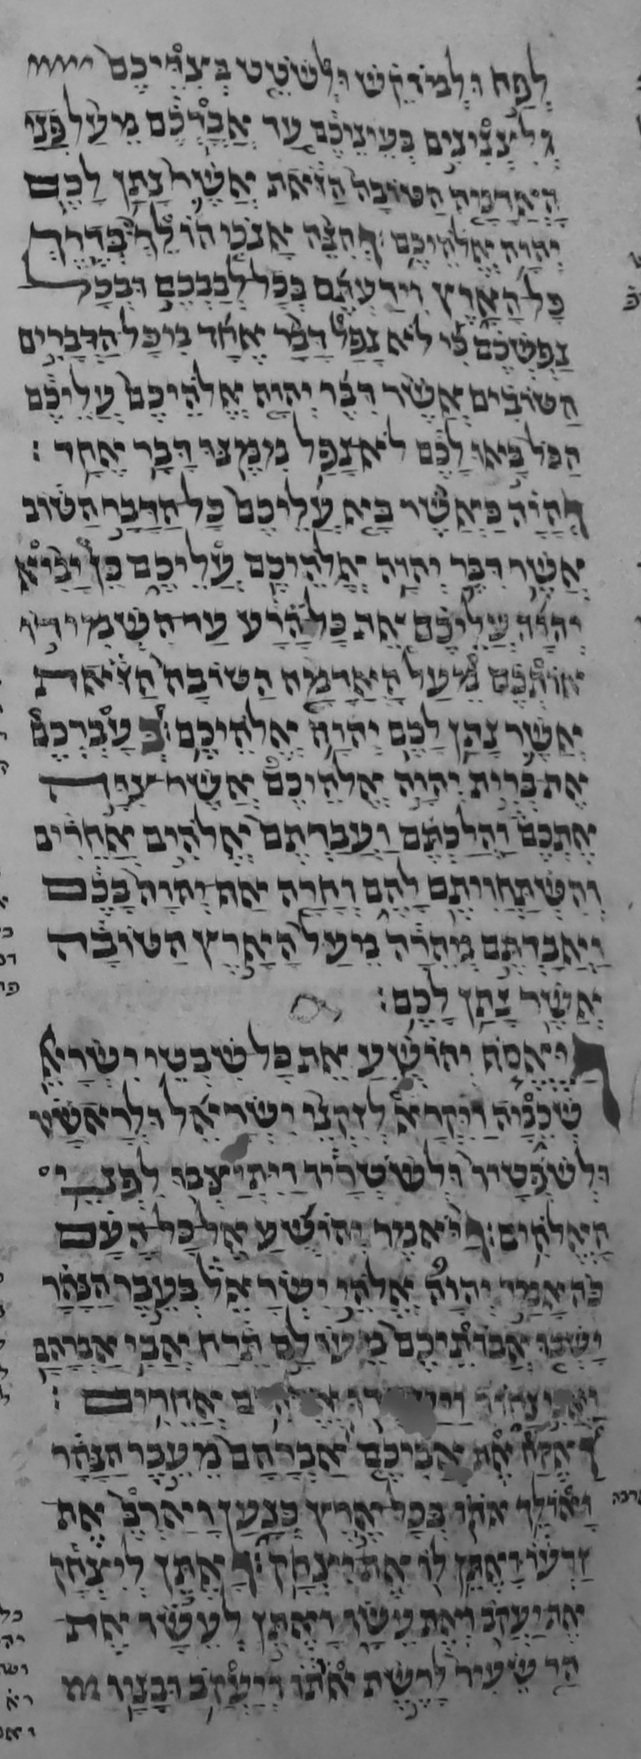 לפח ולמוקש ולשטט בצדיכם
ולצנינים בעיניכם עד אבדכם מעל פני
האדמה הטובה הזאת אשר נתן לכם
יהוה אלהיכם: והנה אנכי הולך בדרך
כל הארץ וידעתם בכל לבבכם ובכל
נפשכם כי לא נפל דבר אחד מכל הדברים
הטובים אשר דבר יהוה אלהיכם עליכם
הכל באו לכם לא נפל ממנו דבר אחד :
והיה כאשר בא עליכם כל הדבר הטוב
אשר דבר יהוה אלהיכם עליכם כן יביא
יהוה עליכם את כל הרע עד השמידו
אותכם מעל האדמה הטובה הזאת
אשר נתן לכם יהוה אלהיכם: בעברכם
את ברית יהוה אלהיכם אשר צוה
אתכם והלכתם ועבדתם אלהים אחרים
והשתחויתם להם וחרה אף יהוה בכם
ואבדתם מהרה מעל הארץ הטובה
אשר נתן לכם:
ויאסף יהושע את כל שבטי ישרא
שכמה ויקרא לזקני ישראל ולראשיו
ולשפטיו ולשטריו ויתיצבו לפני
האלהים: ויאמר יהושע אל כל העם
כה אמר יהוה אלהי ישראל בעבר הנהר
ישבו אבותיכם מעולם תרח אבי אברהם
ואבי נחור אלהים אחרים :
ואקח את אביכם אברהם מעבר הנהר
ואולך אתו בכל ארץ כנען וארב את
זרעו ואתן לו את יצחק: ואתן ליצחק
את יעקב ואת עשו ואתן לעשו את
הר שעיר לרשת אותו ויעקב ובניו